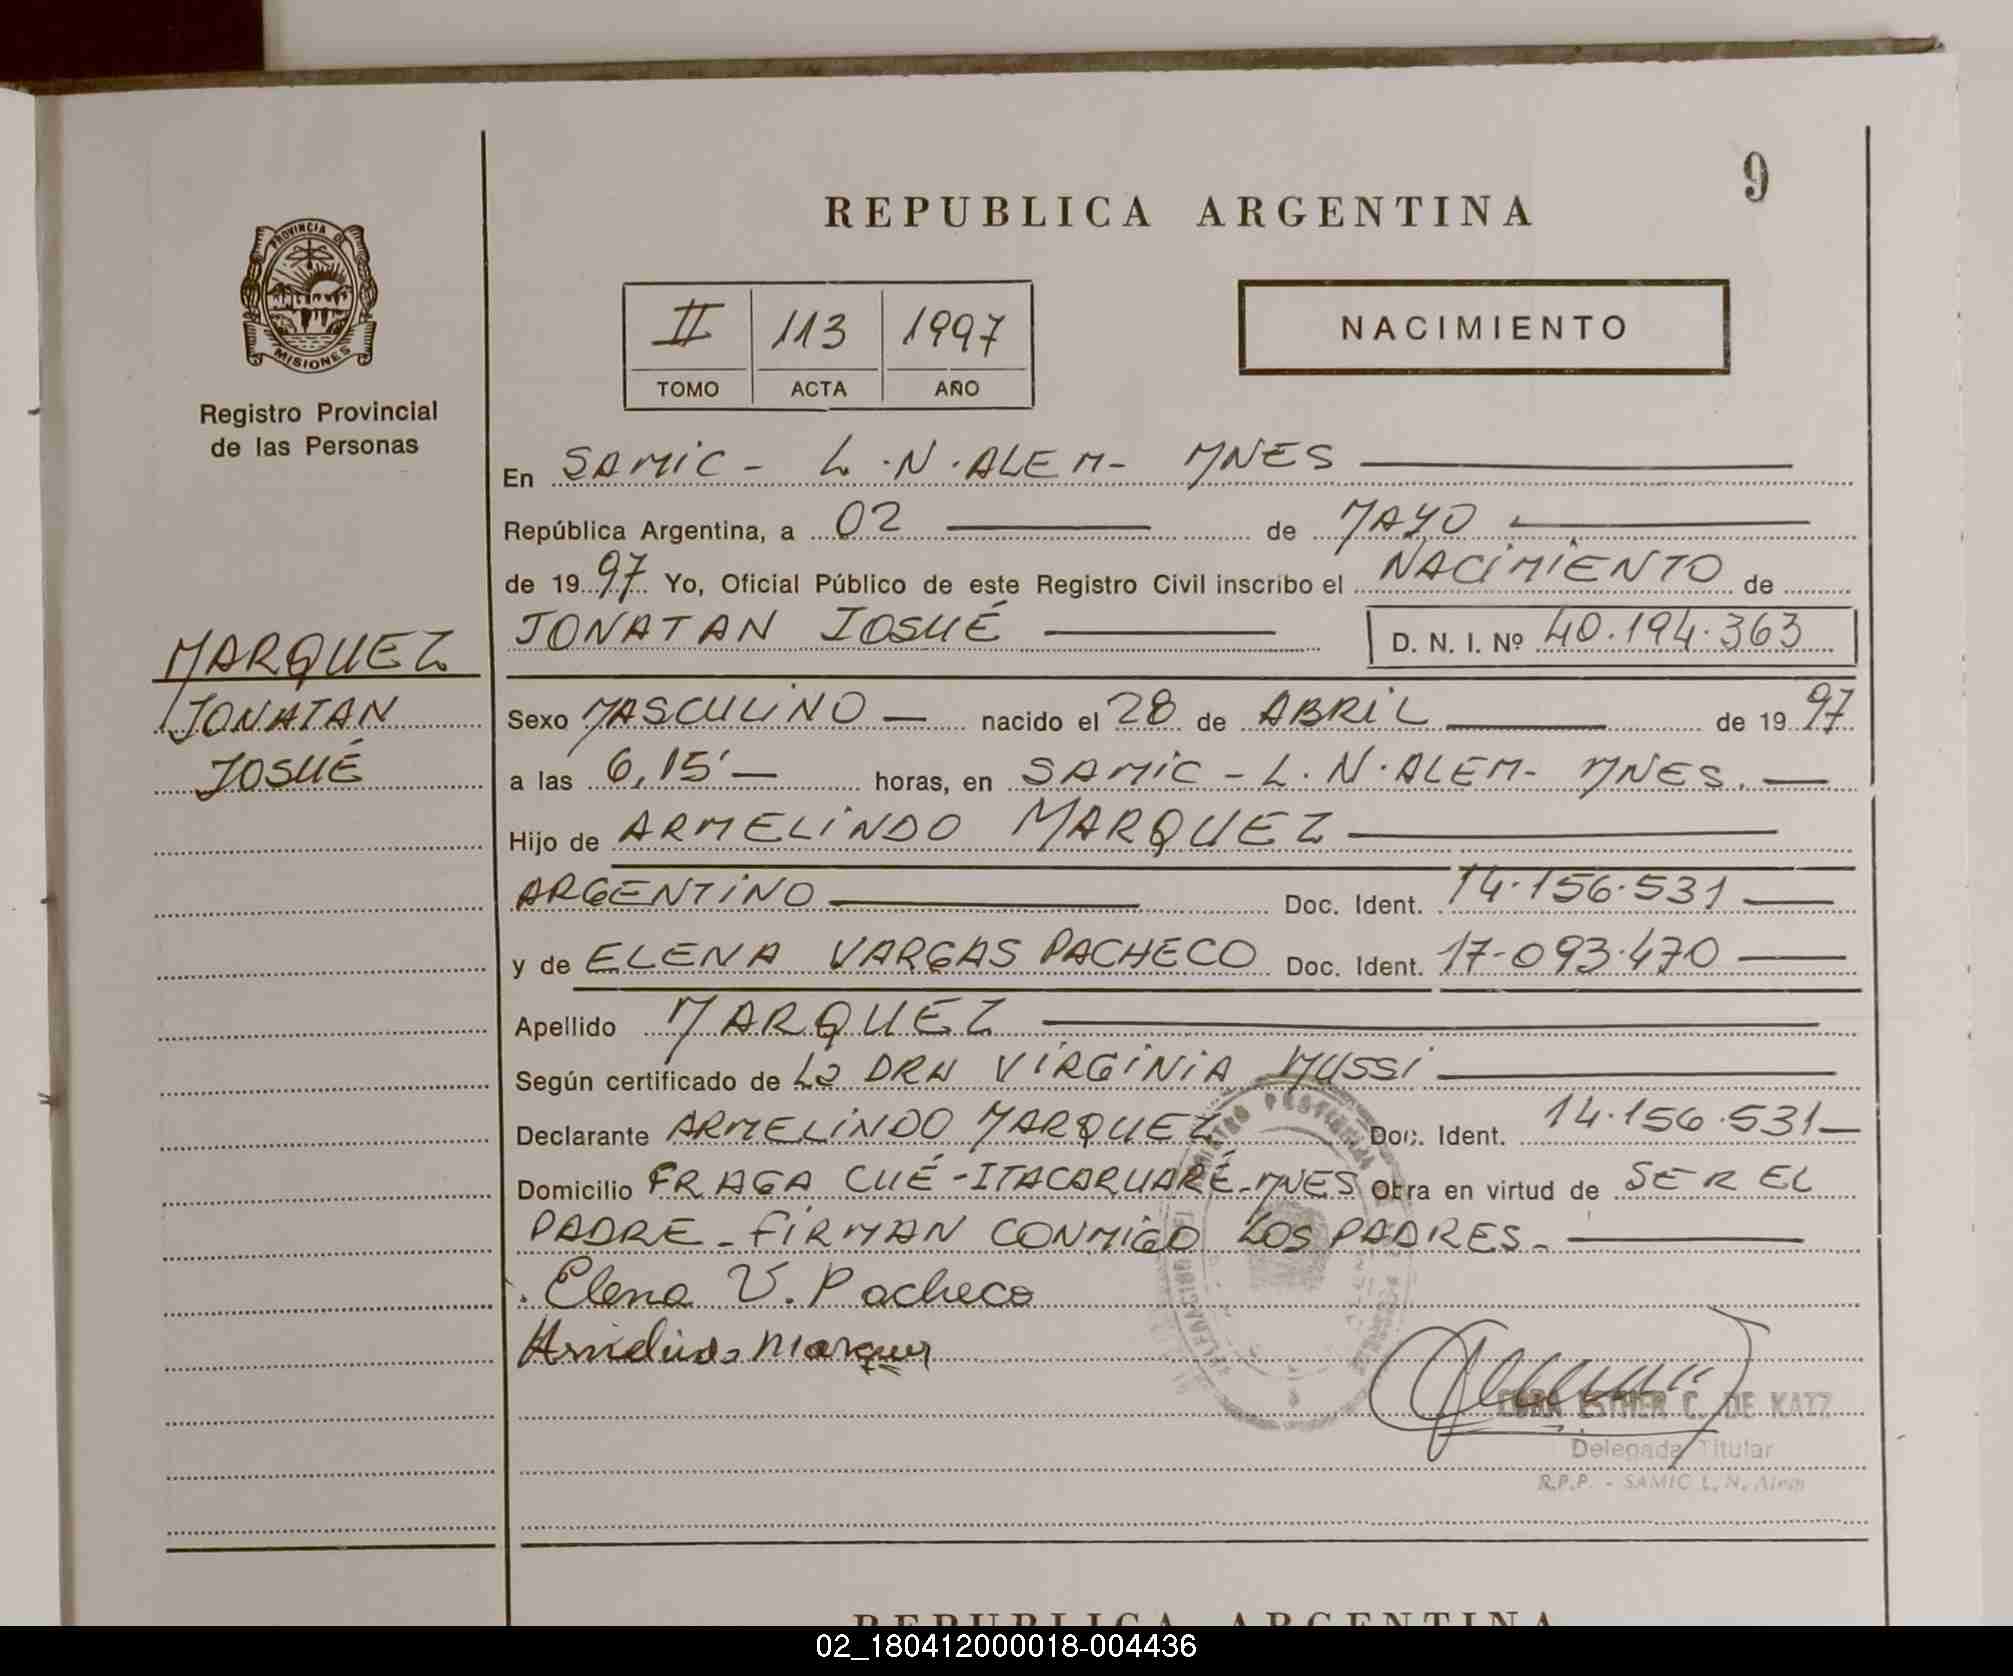 9
REPUBLICA ARGENTINA
PROVINCIA DE
MISIONES
Registro Provincial
de las Personas
II 113 1997
TOMO ACTA AÑO
NACIMIENTO
En SAMIC - L.N.ALEM - MNES
República Argentina, a 02 de MAYO
de 1997 Yo, Oficial Público de este Registro Civil inscribo el NACIMIENTO de
JONATAN JOSUÉ D. N. I. Nº 40.194.363
MARQUEZ
JONATAN
JOSUÉ
Sexo MASCULINO nacido el 28 de ABRIL de 1997
a las 6,15' horas, en SAMIC - L.N.ALEM - MNES.
Hijo de ARMELINDO MARQUEZ
ARGENTINO Doc. Ident. 14.156.531
y de ELENA VARGAS PACHECO Doc. Ident. 17.093.470
Apellido MARQUEZ
Según certificado de La DRA VIRGINIA MUSSI
Declarante ARMELINDO MARQUEZ Doc. Ident. 14.156.531
Domicilio FRAGA CUÉ - ITACARUARÉ - MNES Obra en virtud de SER EL
PADRE - FIRMAN CONMIGO LOS PADRES -
Elena V. Pacheco
Armelindo Marquez
ESTHER C. DE KATZ
Delegada Titular
R.P.P. - SAMIC L. N. Alem
REPUBLICA ARGENTINA
02_180412000018-004436